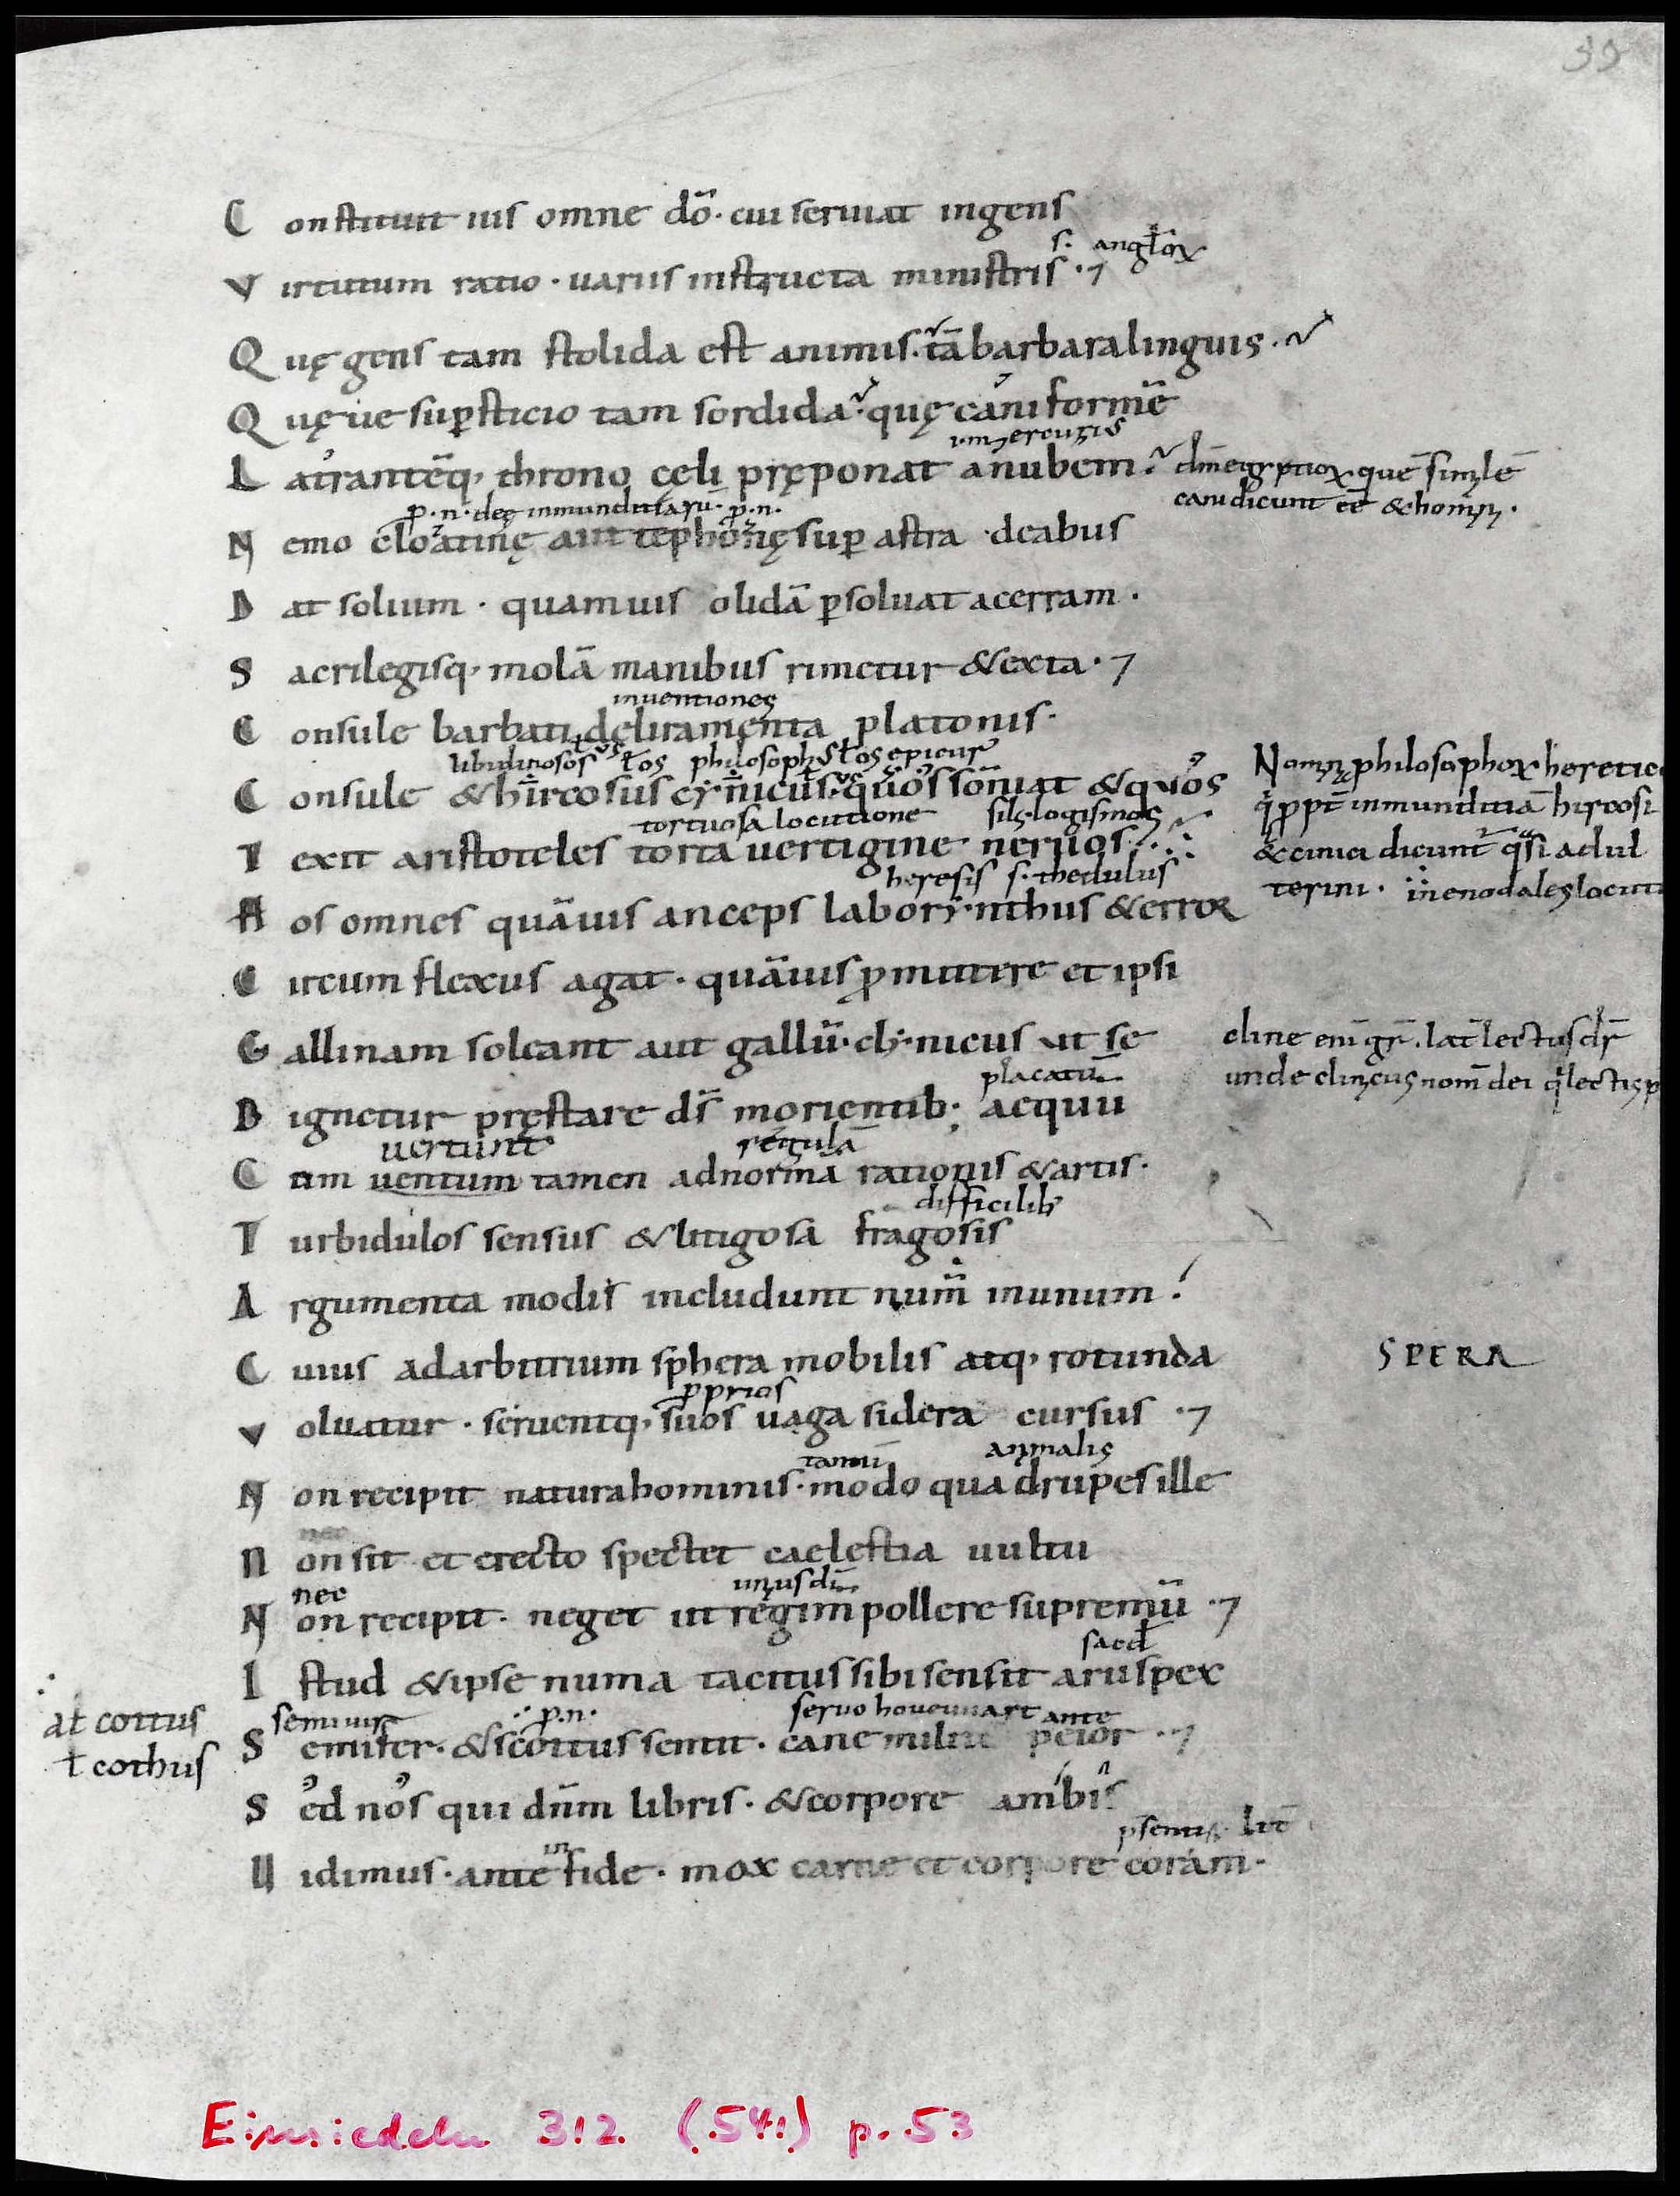 39
C onstituit ius omne dō. cui seruiat ingens
s. anglꝝ
V irtutum ratio. uariis instructa ministris.
Q uę gens tam stolida est animis. tā barbara linguis.
Q uęue suꝑsticio tam sordida. quę caniformē
L atrantēq; throno cęli pręponat anubem.
ꝓ.n. deę inmunditiarū. ꝓ.n.
N emo cloatinę aut tephonę suꝑ astra deabus
D at solium. quamuis olidā ꝑsoluat acerram.
S acrilegisq; molā manibus rimetur & exta.
inuentiones
C onsule barbati deliramenta platonis.
libidinosos
C onsule & hircosus cynicus. quos somniat & quos
tortuosa locutione silogismos
T exit aristoteles torta uertigine neruos.
heresis s. medulus
H os omnes quāuis anceps laborinthus & error
C ircumflexus agat. quāuis ꝓmittere et ipsi
G allinam soleant aut gallū. clinicus ut se
placatū
D ignetur pręstare ds̄ morientib; aequū
uertunt regulā
C um uentum tamen ad normā rationis & artis.
difficilib
T urbidulos sensus & litigosa fragosis
A rgumenta modis includunt num̄ in unum.
C uius ad arbitrium sphera mobilis atq; rotunda
ꝓprios
V oluatur. seruentq; suos uaga sidera cursus.
tantū animalis
N on recipit natura hominis. modo quadrupes ille
N on sit et erecto spectet caelestia uultu
nec
N on recipit. neget ut regim pollere supremū.
I stud & ipse numa tacitus sibi sensit aruspex
semiuir ꝓ.n. ante
S emifer. & scottus sentit. cane milite peior.
S ed nos qui dn̄m libris. & corpore
in
U idimus. ante fide. mox carne et corpore coram.
cani dicunt eē & homini.
philosophoꝝ
inmunditiā hircosi
& cinici dicunt̄ q̄si adul
terini.
cline eni gr̄. lat̄ lectus dr̄
SPERA
aƚ cottus
ƚ cothus
Einsiedeln 312. (541) p. 53